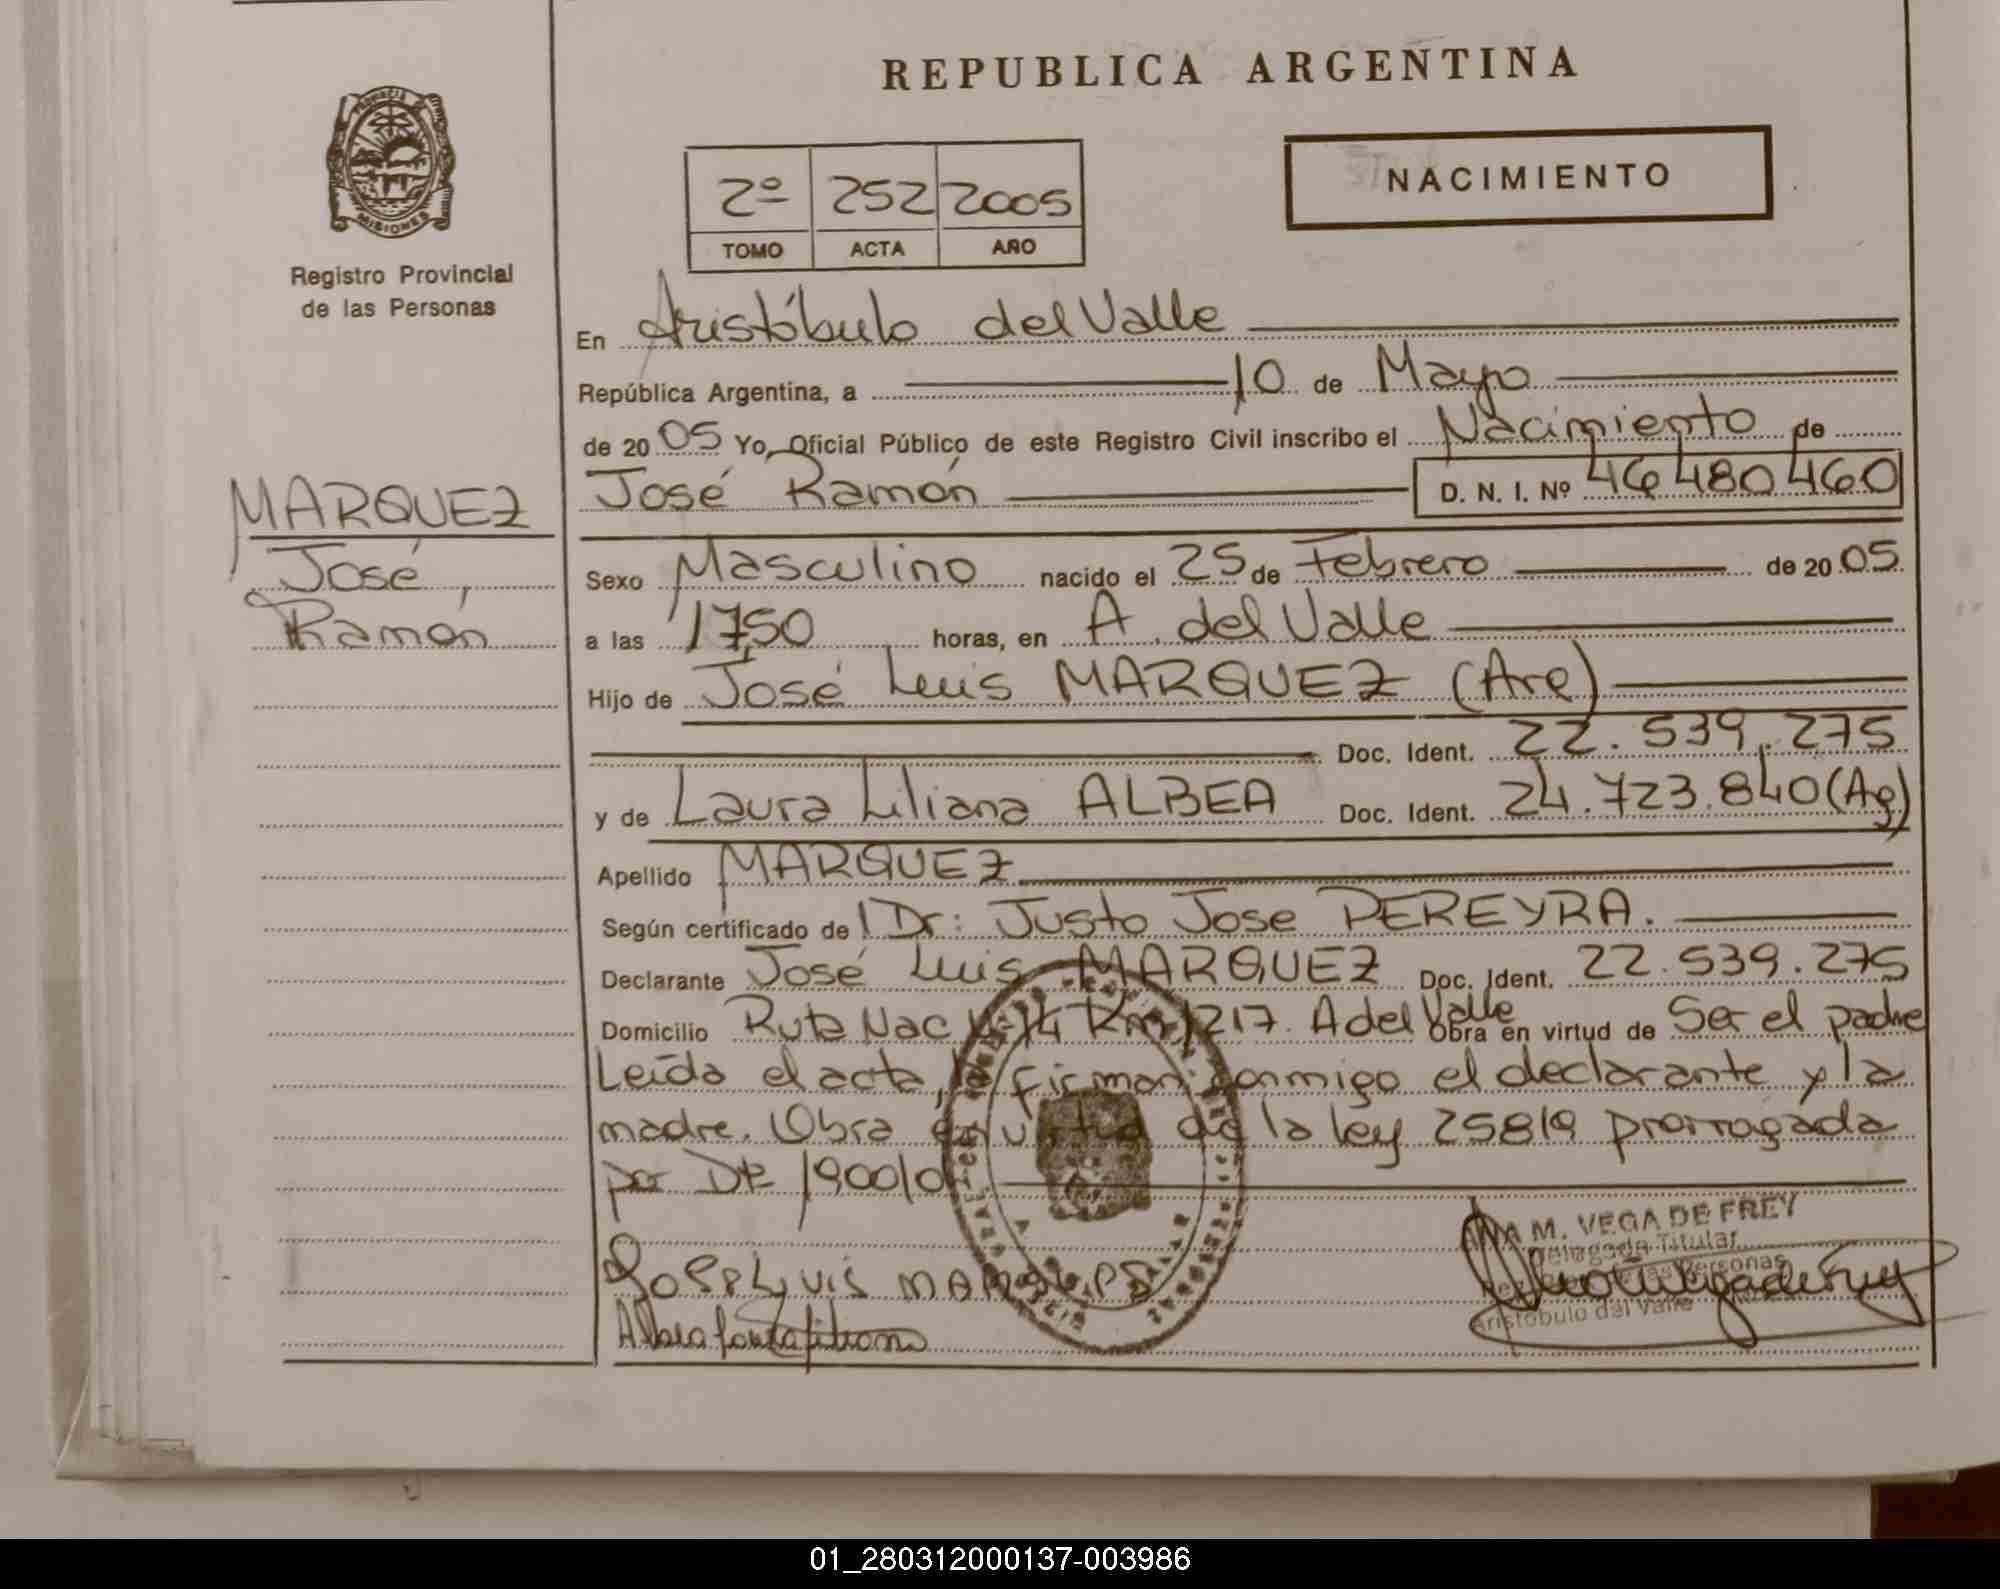 REPUBLICA ARGENTINA
PROVINCIA DE
MISIONES
Registro Provincial
de las Personas
2º 252 2005
TOMO ACTA AÑO
NACIMIENTO
En Aristóbulo del Valle
República Argentina, a 10 de Mayo
de 20 05 Yo, Oficial Público de este Registro Civil inscribo el Nacimiento de
José Ramón D. N. I. Nº 46 480 460
MARQUEZ
José,
Ramón
Sexo Masculino nacido el 25 de Febrero de 20 05
a las 17,50 horas, en A. del Valle
Hijo de José Luis MARQUEZ (Arg)
Doc. Ident. 22.539.275
y de Laura Liliana ALBEA Doc. Ident. 24.723.840 (Ag)
Apellido MARQUEZ
Según certificado de Dr: Justo Jose PEREYRA.
Declarante José Luis MARQUEZ Doc. Ident. 22.539.275
Domicilio Ruta Nac Nº 14 Km 1217. A del Valle Obra en virtud de Ser el padre
Leída el acta, la firman conmigo el declarante y la
madre. Obra en virtud de la ley 25819 prorrogada
por 1900/04
José Luis MARQUES
Albea
ANA M. VEGA DE FREY
Delegada Titular
de las Personas
Aristóbulo del Valle
01_280312000137-003986